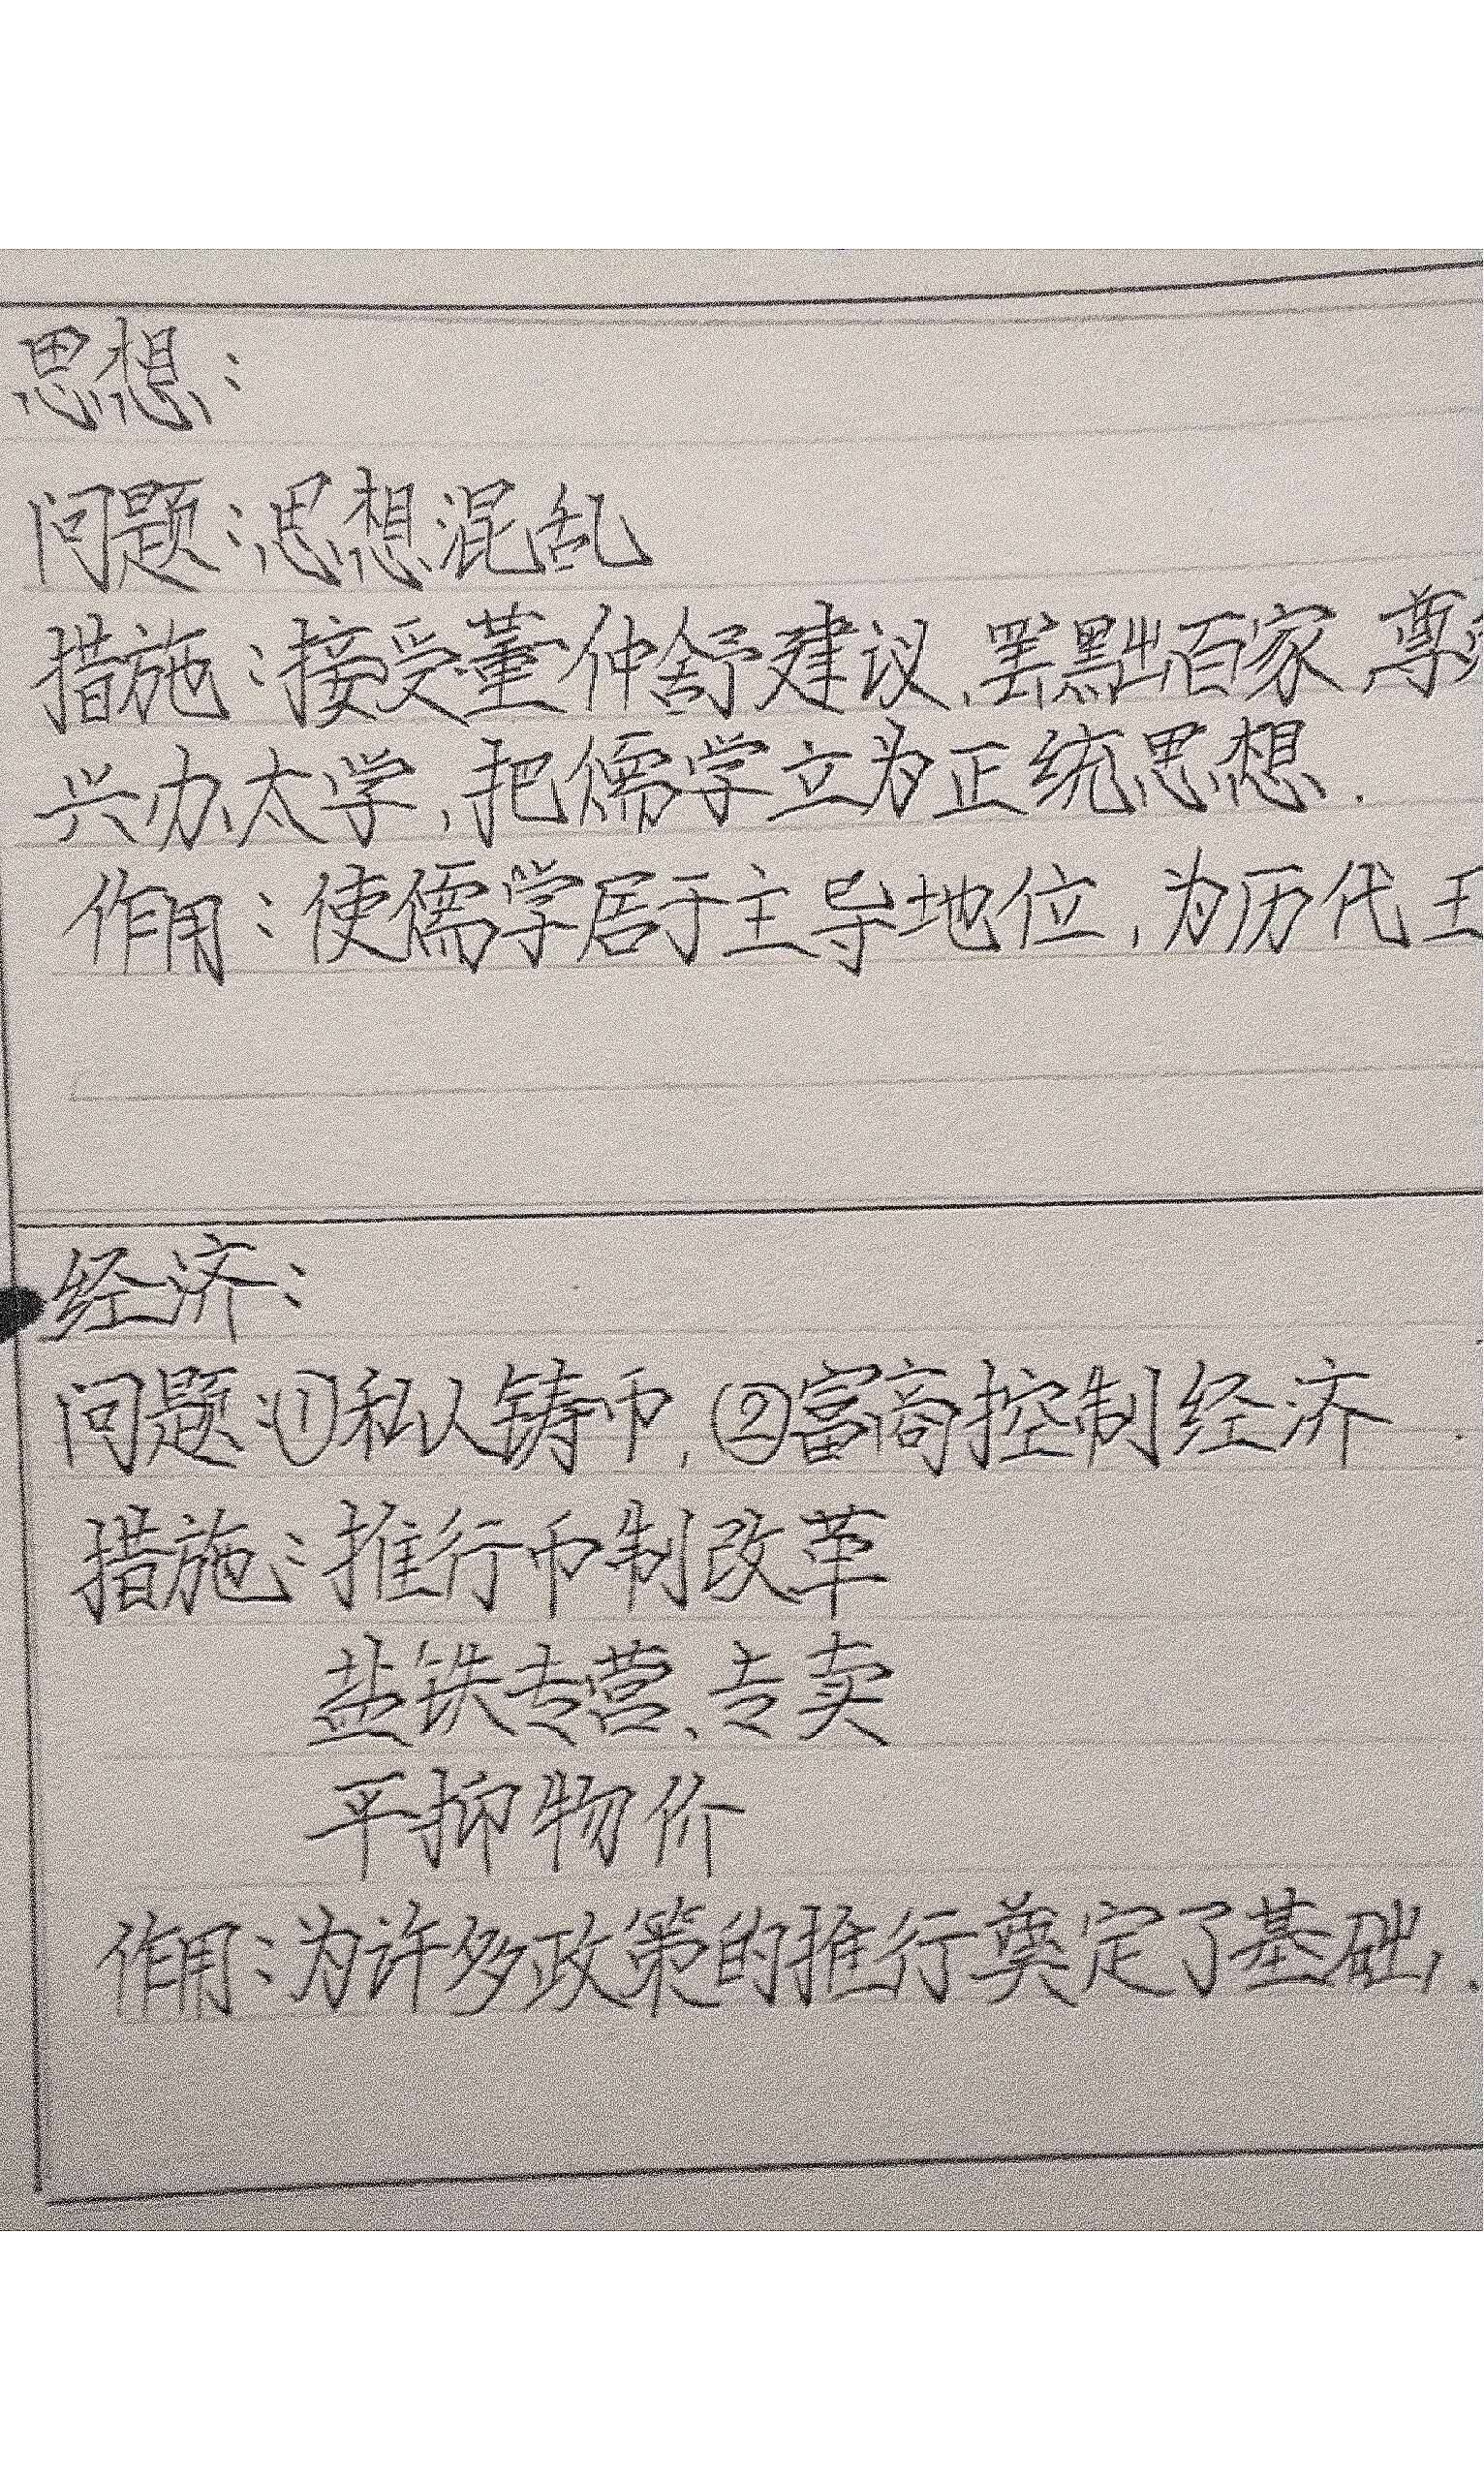 思想：
问题：思想混乱
措施：接受董仲舒建议，罢黜百家，尊
兴办太学，把儒学立为正统思想．
作用：使儒学居于主导地位，为历代王
经济：
问题：①私人铸币，②富商控制经济．
措施：推行币制改革
盐铁专营、专卖
平抑物价
作用：为许多政策的推行奠定了基础，．